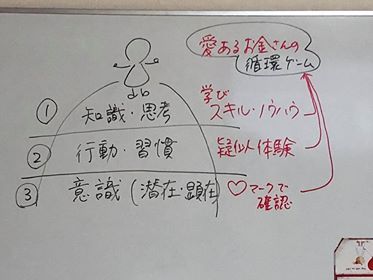 愛あるお金さんの
循環ゲーム
① 知識・思考
学び
スキル・ノウハウ
② 行動・習慣
疑似体験
③ 意識(潜在・顕在)
♡マークで
確認